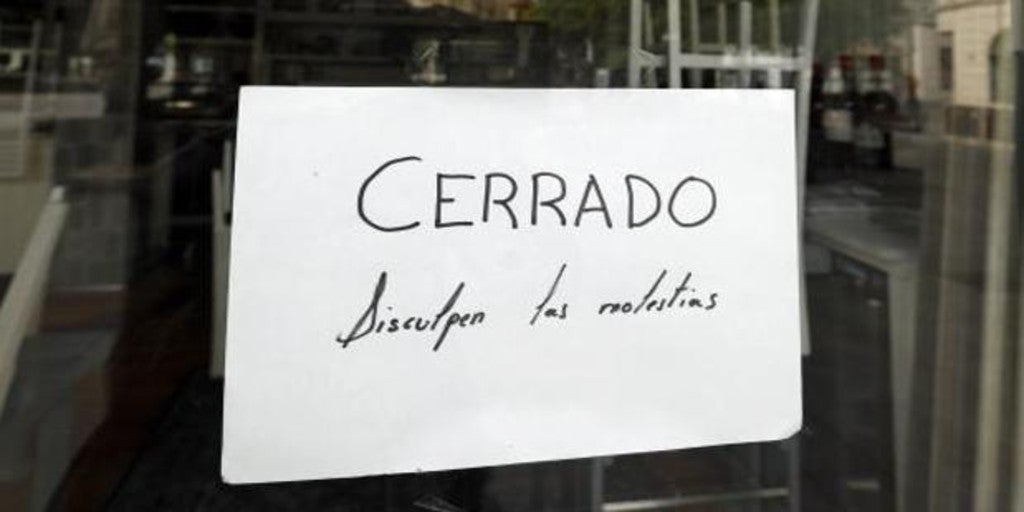 CERRADO
Disculpen las molestias